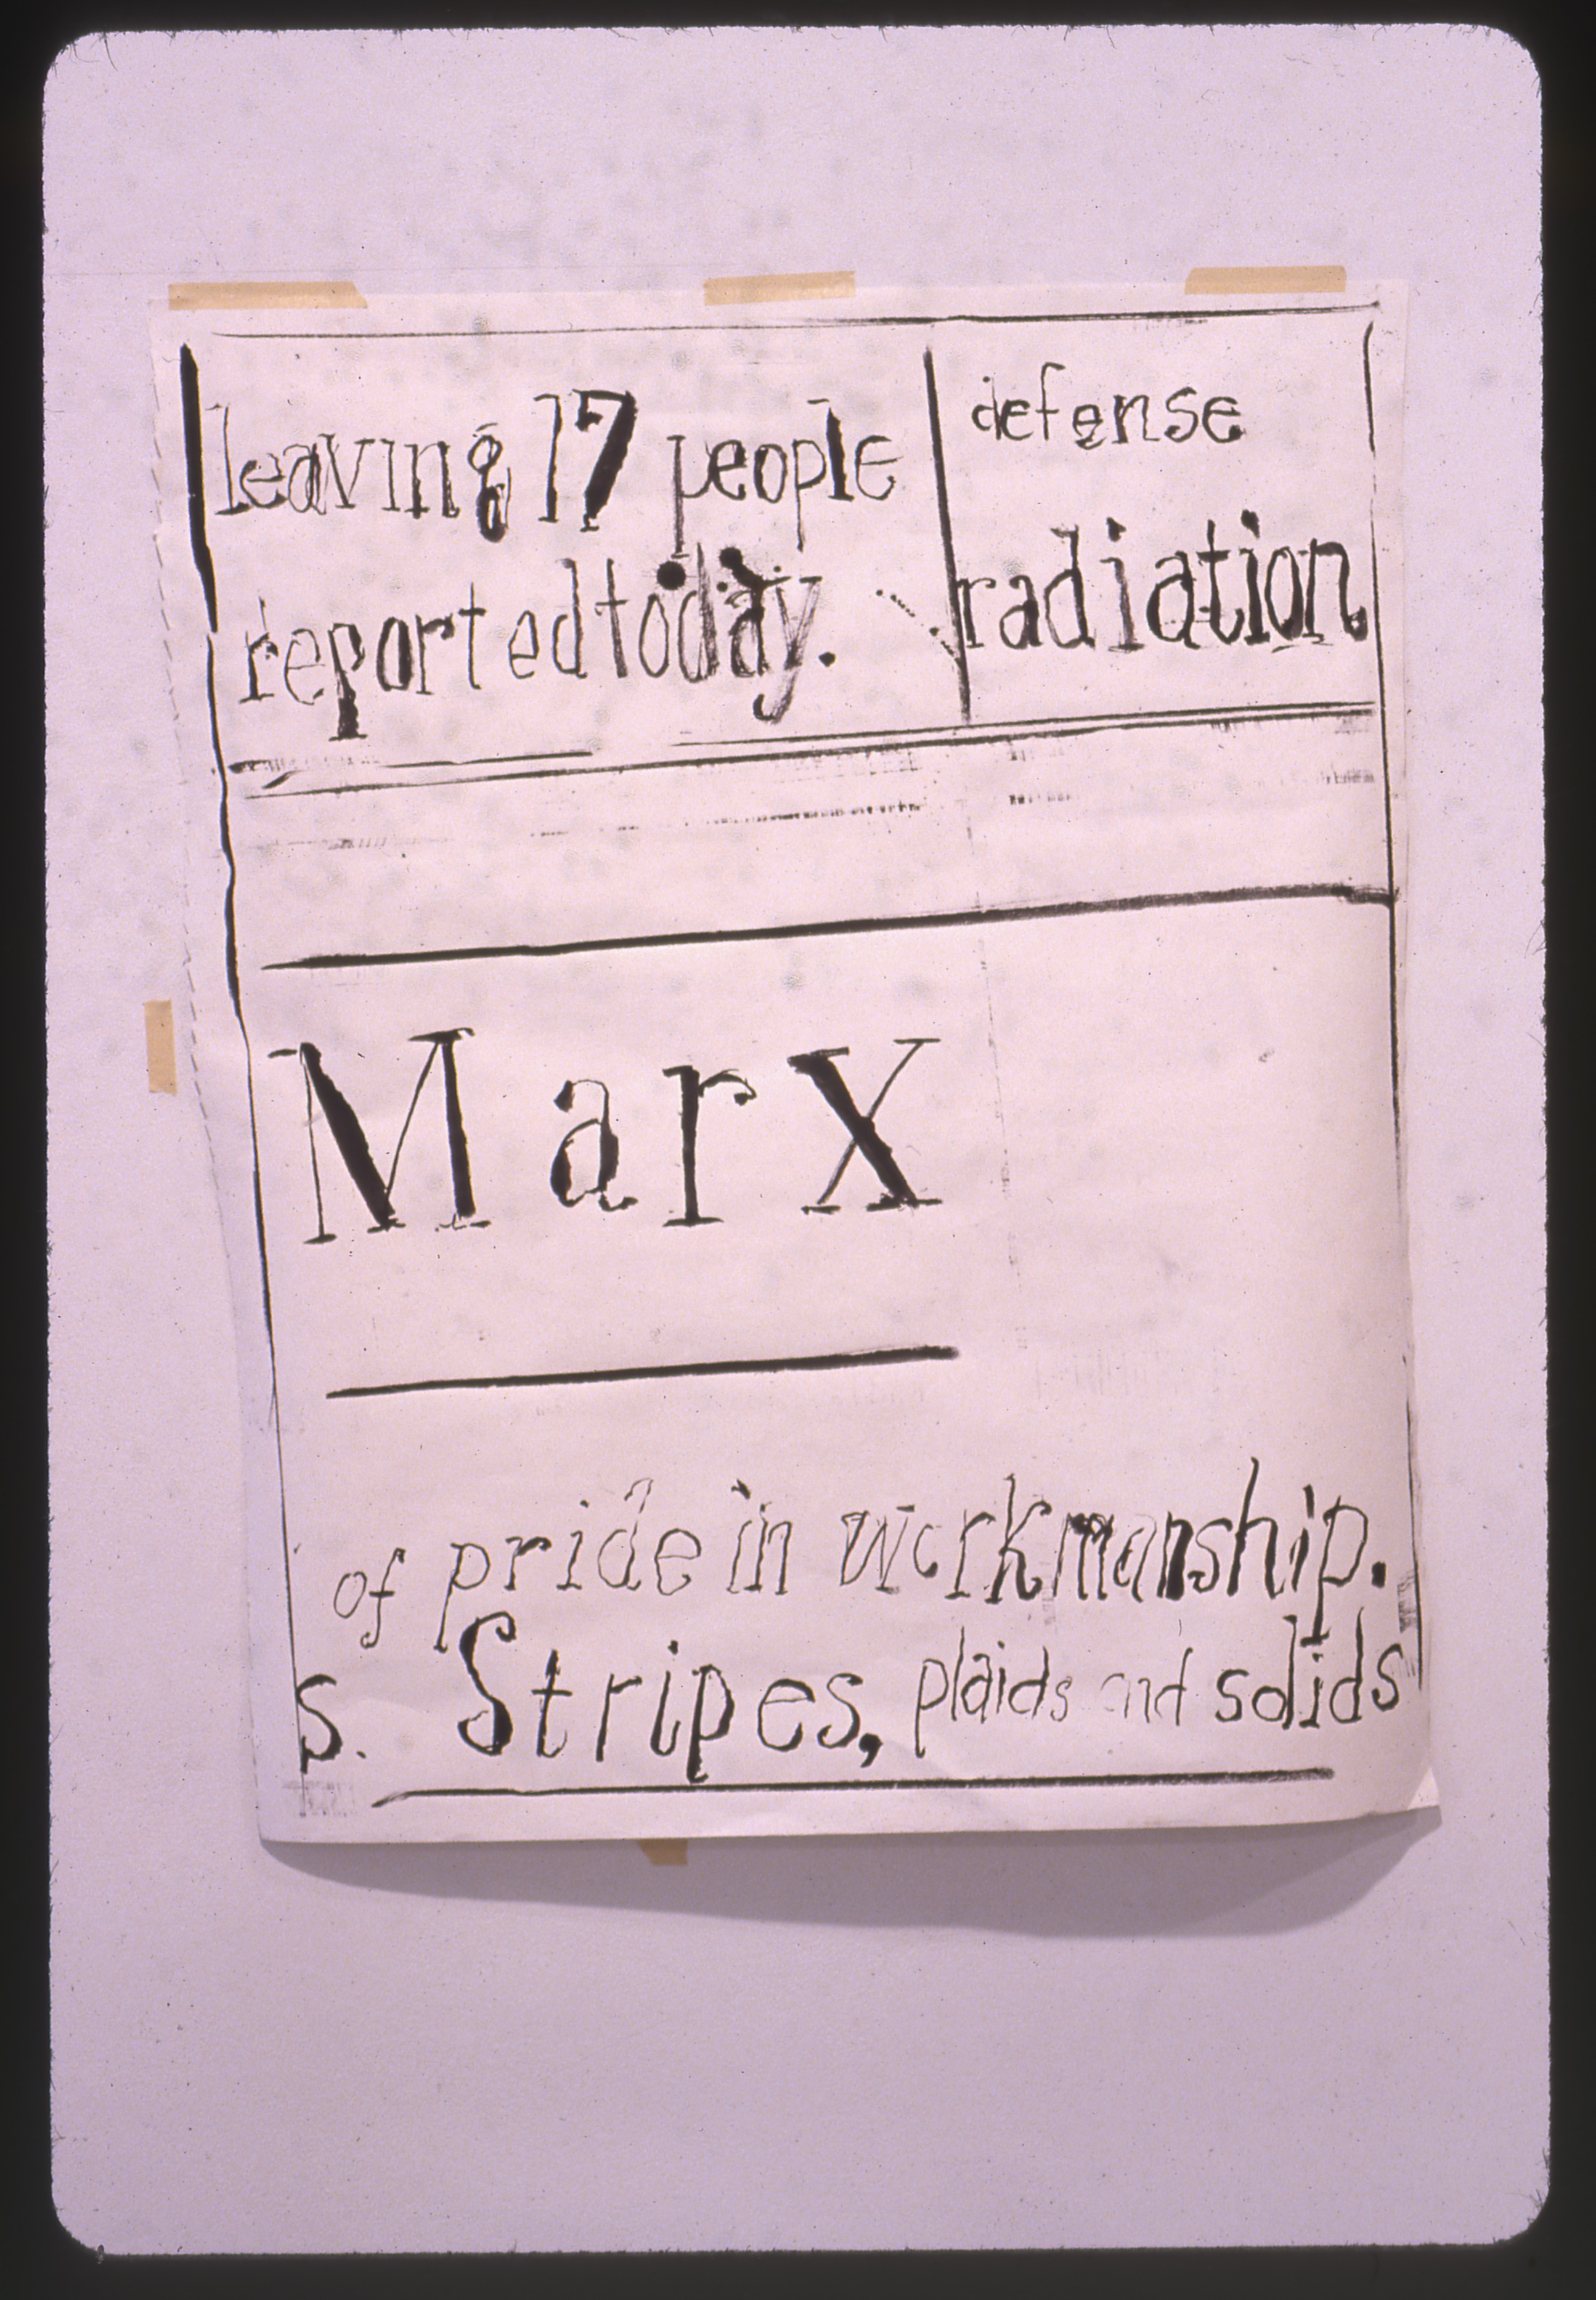 leaving 17 people
reported today.
defense
radiation
Marx
of pride in workmanship.
s. Stripes, plaids and solids